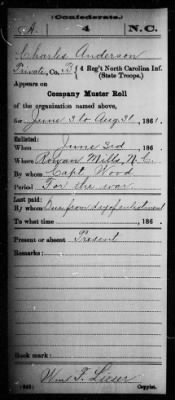 (Confederate.)
A. 4 N.C.
Charles Anderson
Private, Co. B, 4 Reg't North Carolina Inf.
(State Troops.)
Appears on
Company Muster Roll
of the organization named above,
for June 3 to Aug 31, 1861.
Enlisted:
When June 3rd, 186 .
Where Rowan Mills, N.C.
By whom Capt. Wood
Period For the war
Last paid:
By whom Due from day of enlistment
To what time , 186 .
Present or absent Present
Remarks:
Book mark:
Wm. F. Lieser
Copyist.